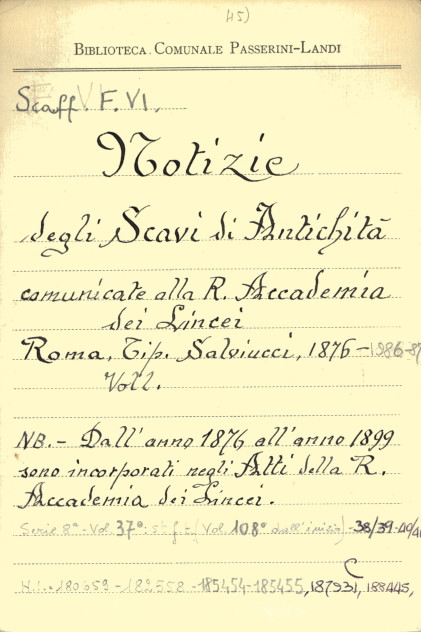 45)
BIBLIOTECA COMUNALE PASSERINI-LANDI
Scaff. F. VI.
Notizie
degli Scavi di Antichità
comunicate alla R. Accademia
dei Lincei
Roma, Tip. Salviucci, 1876-1986-87
Voll.
NB. - Dall'anno 1876 all'anno 1899
sono incorporati negli Atti della R.
Accademia dei Lincei.
Serie 8ª - Vol. 37°: (Vol. 108° dall'inizio) - 38/39-40/
N.I. 180659-182558-185454-185455, 187931, 188445,